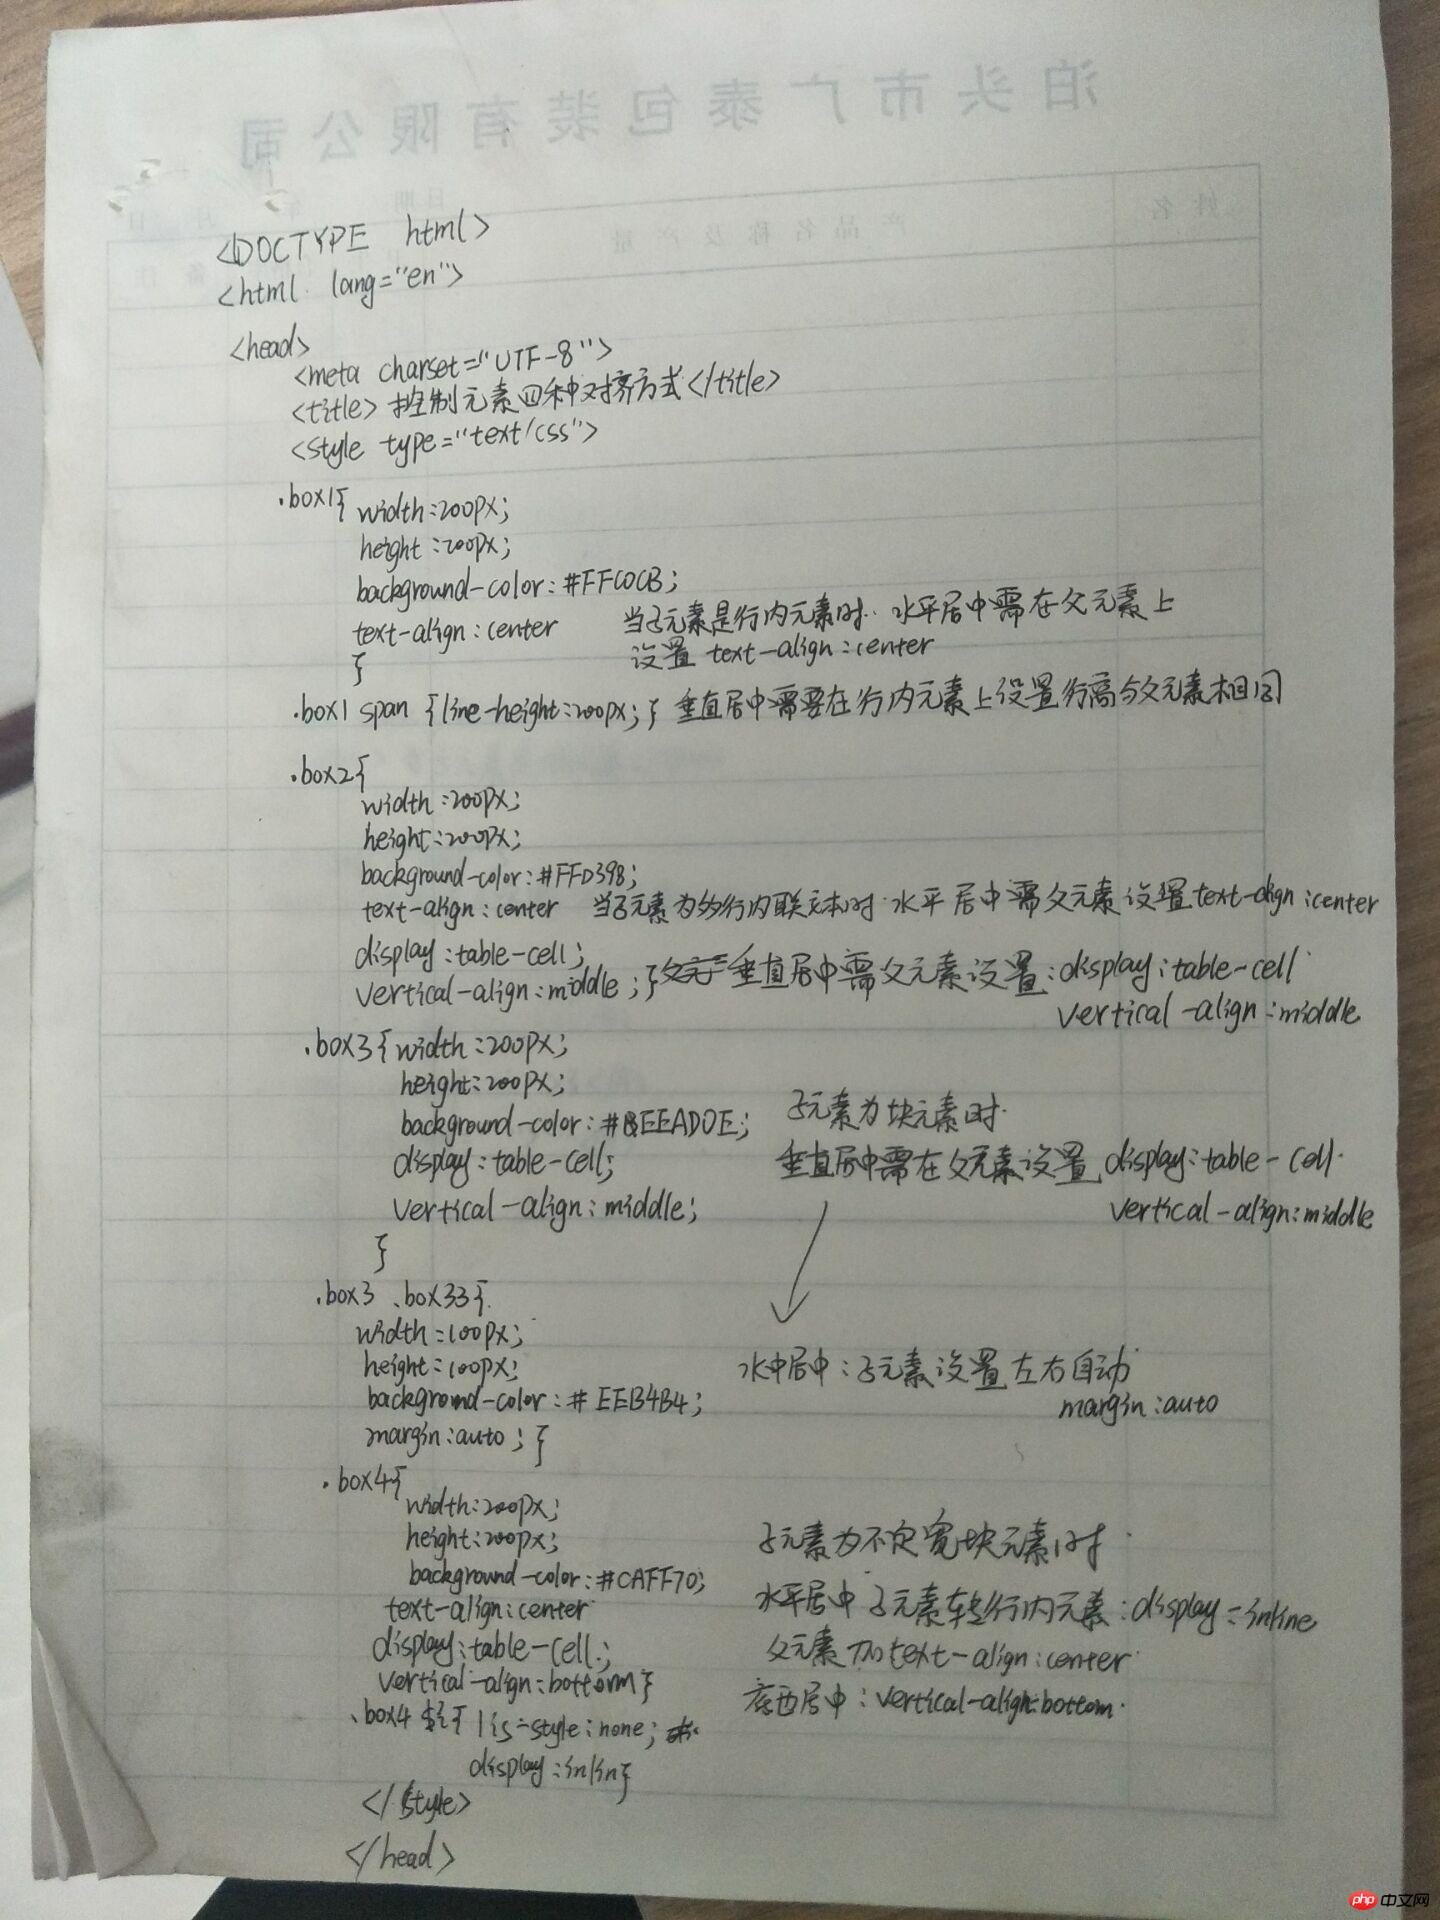 泊头市广泰包装有限公司
姓名 产品名称及产量 日期 年 月 日
<DOCTYPE html>
<html lang="en">
<head>
<meta charset="UTF-8">
<title>控制元素四种对齐方式</title>
<style type="text/css">
.box1{ width:200px;
height:200px;
background-color:#FFC0CB;
text-align:center 当子元素是行内元素时. 水平居中需在父元素上
} 设置 text-align:center
.box1 span {line-height:200px;} 垂直居中需要在行内元素上设置行高与父元素相同
.box2{
width:200px;
height:200px;
background-color:#FFD398;
text-align:center 当子元素为多行内联文本时. 水平居中需父元素设置text-align:center
display:table-cell;
vertical-align:middle;} 垂直居中需父元素设置:display:table-cell
vertical-align:middle
.box3{width:200px;
height:200px;
background-color:#EEAD0E; 子元素为块元素时.
display:table-cell; 垂直居中需在父元素设置 display:table-cell.
vertical-align:middle; vertical-align:middle
}
.box3 .box33{
width:100px;
height:100px; 水中居中:子元素设置左右自动
background-color:#EEB4B4; margin:auto
margin:auto;}
.box4{
width:200px;
height:200px; 子元素为不定宽块元素时.
background-color:#CAFF70;
text-align:center 水平居中 子元素转行内元素:display=inline
display:table-cell; 父元素加text-align:center
vertical-align:bottom} 底部居中:vertical-align:bottom.
.box4 {lis-style:none;
display:inlin}
</style>
</head>
php 中文网